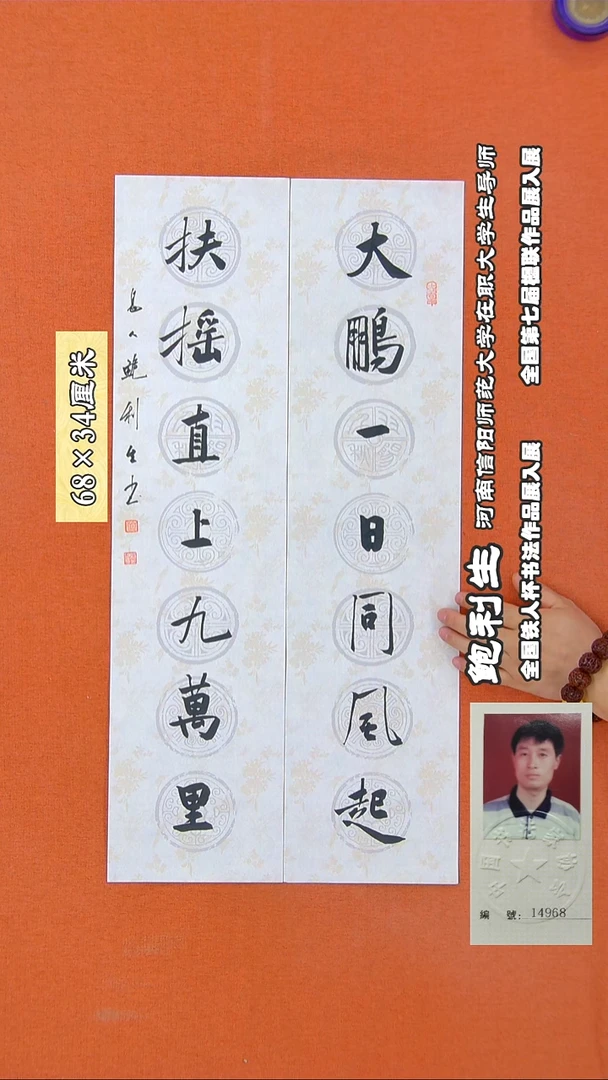 大鹏一日同風起
扶摇直上九萬里
鲍利生书
68×34厘米
鲍利生 河南信阳师范大学在职大学生导师
全国铁人杯书法作品展入展 全国第七届楹联作品展入展
編 號: 14968